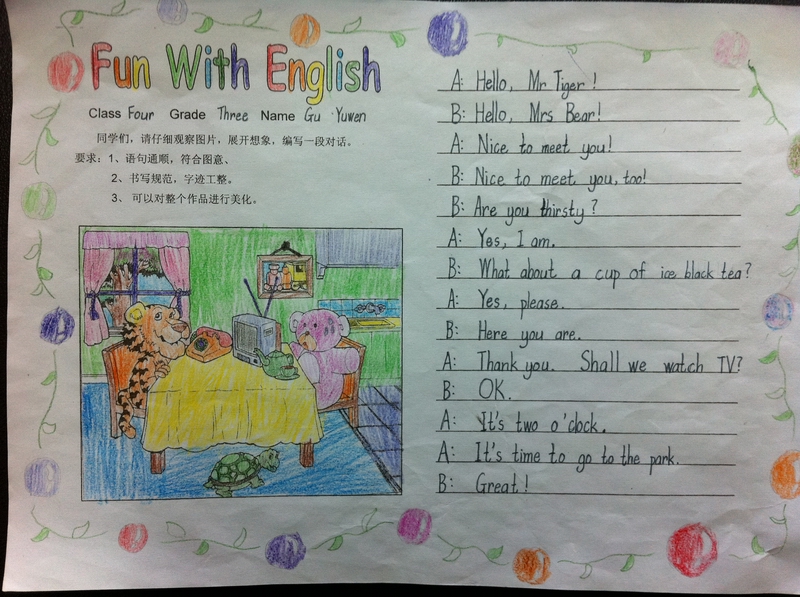 Fun With English
Class Four Grade Three Name Gu Yuwen
同学们，请仔细观察图片，展开想象，编写一段对话。
要求：1、语句通顺，符合图意、
2、书写规范，字迹工整。
3、可以对整个作品进行美化。
A: Hello, Mr Tiger!
B: Hello, Mrs Bear!
A: Nice to meet you!
B: Nice to meet you, too!
B: Are you thirsty?
A: Yes, I am.
B: What about a cup of ice black tea?
A: Yes, please.
B: Here you are.
A: Thank you. Shall we watch TV?
B: OK.
A: It's two o'clock.
A: It's time to go to the park.
B: Great!